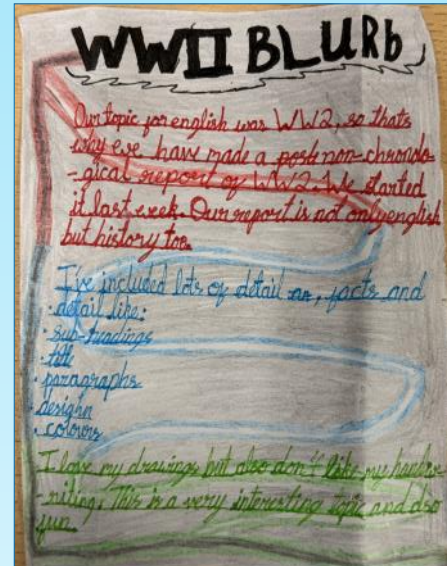 WWII BLURb
Our topic for english was WW2, so thats
why eve have made a post non-chronolo
-gical report of WW2. We started
it last week. Our report is not only english
but history too.
I've included lots of detail as, facts and
detail like:
· sub-headings
· title
· paragraphs
· designn
· colours
I love my drawings but also don't like my handw
-riting. This is a very interesting topic and also
fun.